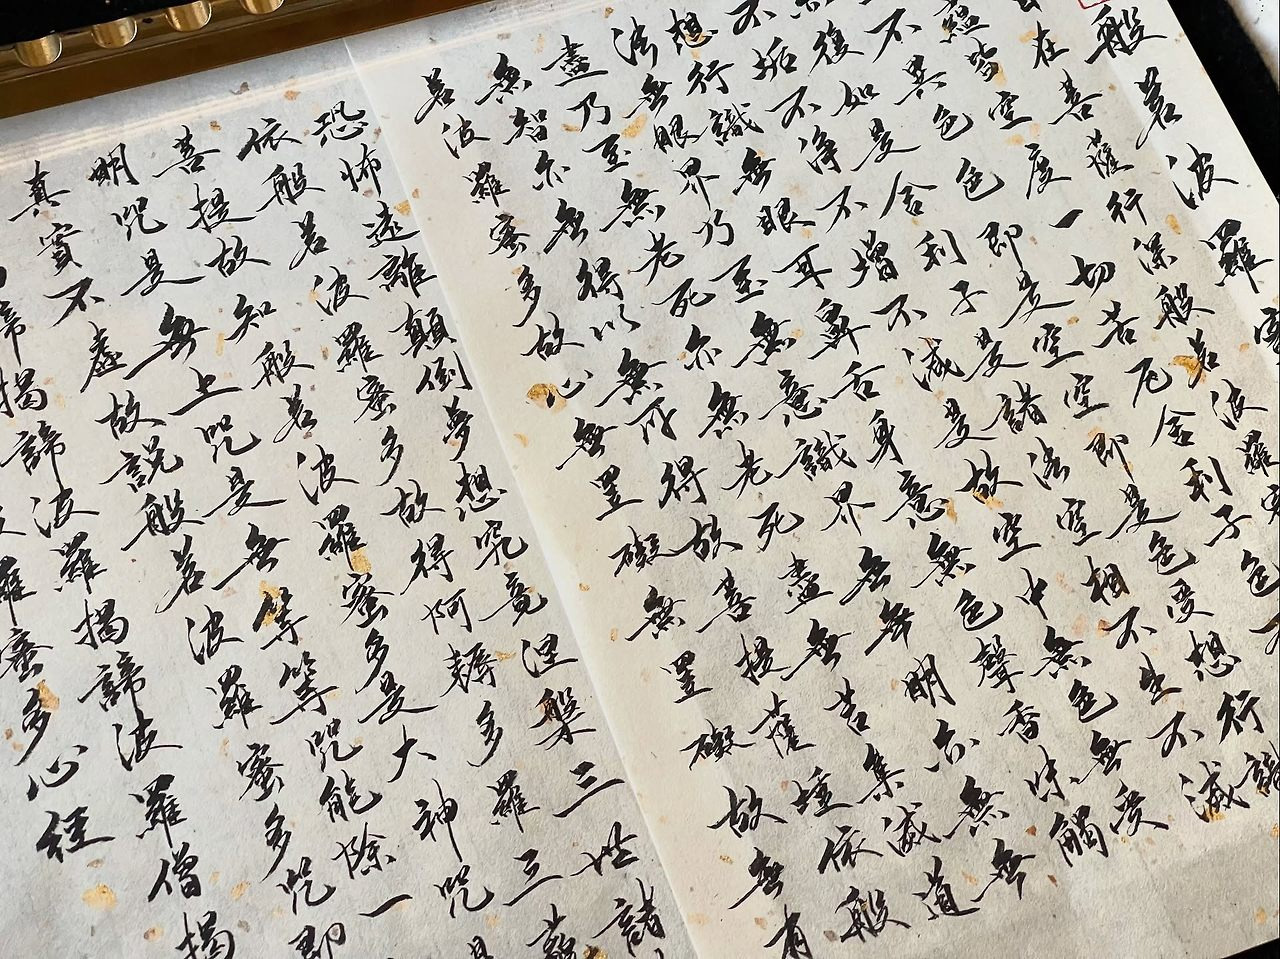 般若波羅蜜
在菩薩行深般若波羅蜜
蘊皆空度一切苦厄舍利子色不
不異色色即是空空即是色受想行
復如是舍利子是諸法空相不生不滅
不垢不淨不增不減是故空中無色無受
想行識無眼耳鼻舌身意無色聲香味觸
法無眼界乃至無意識界無無明亦無無
盡乃至無老死亦無老死盡無苦集滅道
無智亦無得以無所得故菩提薩埵依般
若波羅蜜多故心無罣礙無罣礙故無有
恐怖遠離顛倒夢想究竟涅槃三世諸
依般若波羅蜜多故得阿耨多羅三藐
菩提故知般若波羅蜜多是大神咒是
明咒是無上咒是無等等咒能除一
真實不虛故說般若波羅蜜多咒即
諦揭諦波羅揭諦波羅僧揭
羅蜜多心經